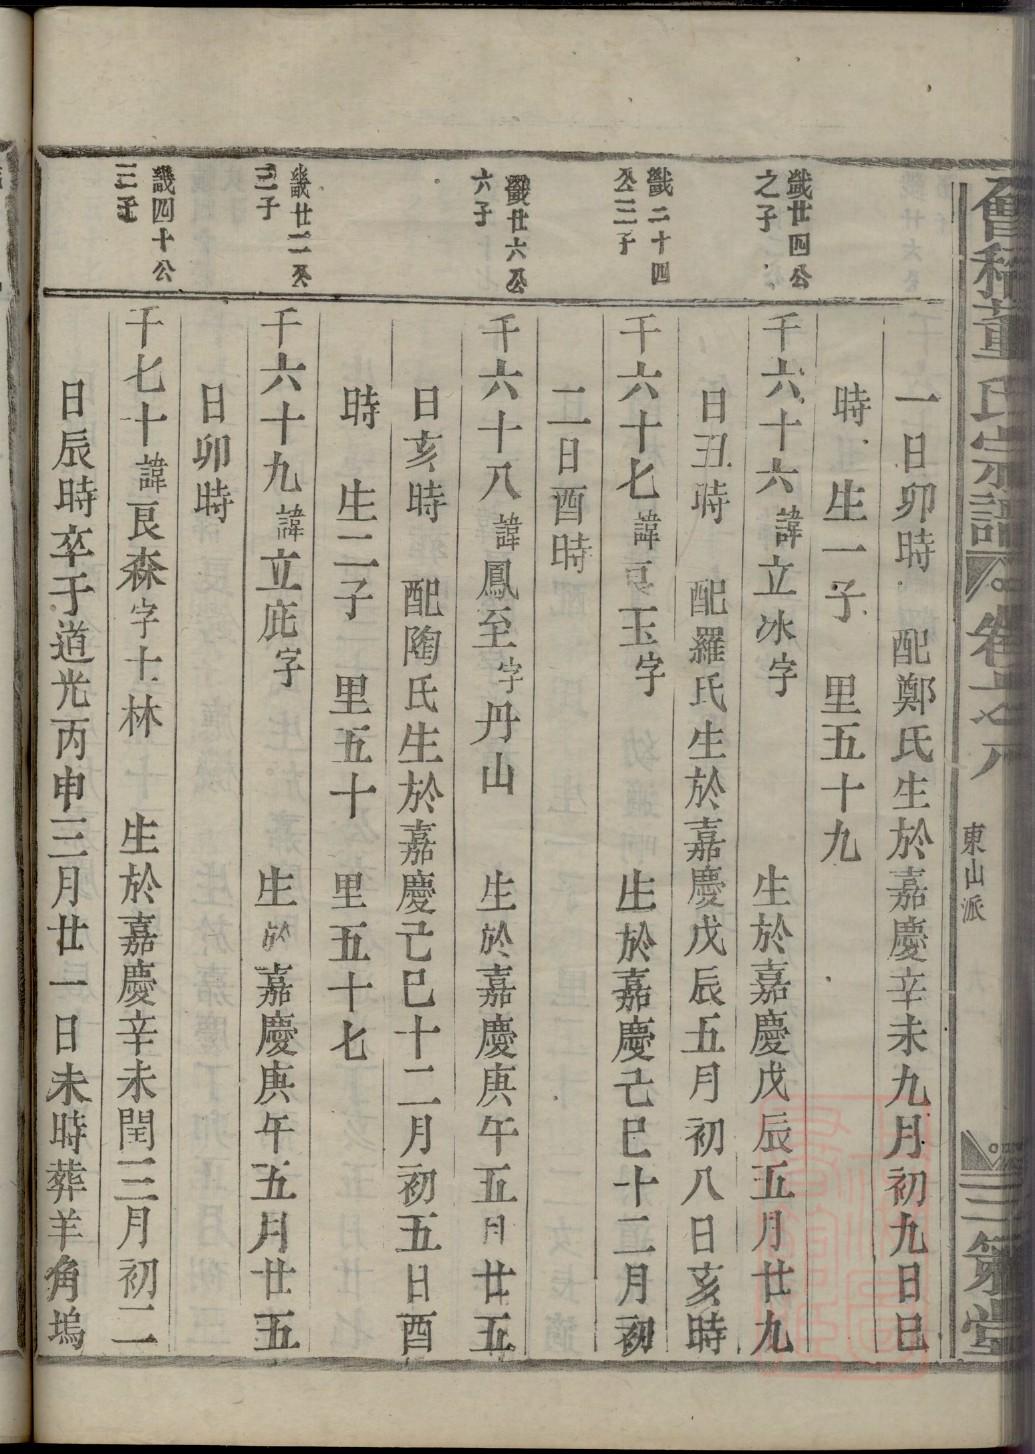 會稽董氏宗譜
卷十七八
東山派
三策堂
一日卯時 配鄭氏生於嘉慶辛未九月初九日巳
時 生一子 里五十九
千六十六諱立冰字 生於嘉慶戊辰五月廿九
日丑時 配羅氏生於嘉慶戊辰五月初八日亥時
千六十七諱 玉字 生於嘉慶己巳十二月初
二日酉時
千六十八諱鳳至字丹山 生於嘉慶庚午五月廿五
日亥時 配陶氏生於嘉慶己巳十二月初五日酉
時 生二子 里五十 里五十七
千六十九諱立庇字 生於嘉慶庚午五月廿五
日卯時
千七十諱良森字士林 生於嘉慶辛未閏三月初二
日辰時卒于道光丙申三月廿一日未時葬羊角塢
廿四公
之子
二十四
公三子
廿六公
六子
廿二公
三子
四十公
三子